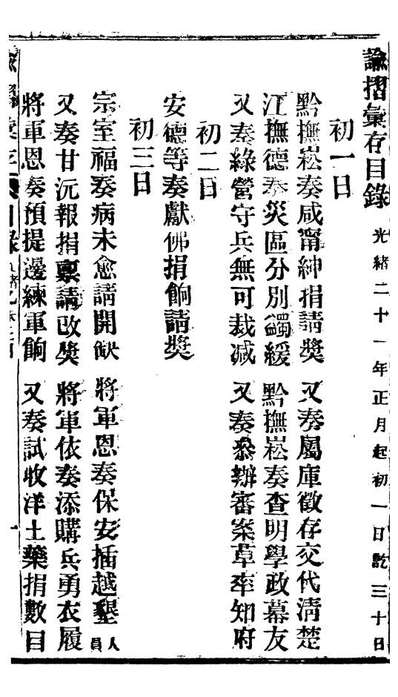 諭摺彙存目錄 光緒二十一年正月起初一日訖三十日
初一日
黔撫崧奏咸甯紳捐請獎 又奏屬庫徵存交代清楚
江撫德奏災區分別蠲緩 黔撫崧奏查明學政幕友
又奏綠營守兵無可裁减 又奏叅辦審案草率知府
初二日
安德等奏獻佛捐餉請獎
初三日
宗室福奏病未愈請開缺 將軍恩奏保安插越墾人員
又奏甘沅報捐票請改奬 將軍依奏添購兵勇衣履
將軍恩奏預提邊練軍餉 又奏試收洋土藥捐數目